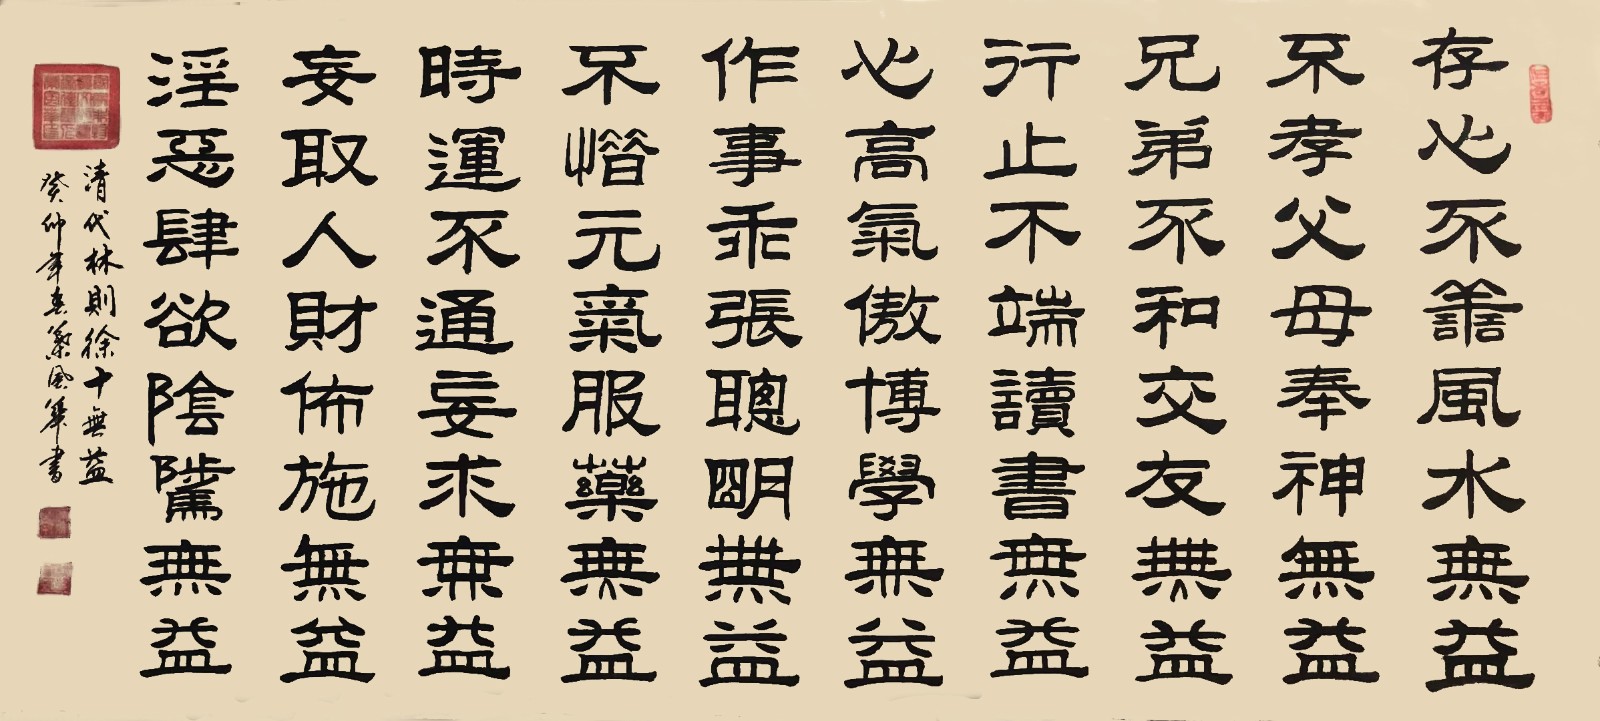 存心不善風水無益
不孝父母奉神無益
兄弟不和交友無益
行止不端讀書無益
心高氣傲博學無益
作事乖張聰明無益
不惜元氣服藥無益
時運不通妄求無益
妄取人財佈施無益
淫惡肆欲陰騭無益
清代林則徐十無益
癸卯年春